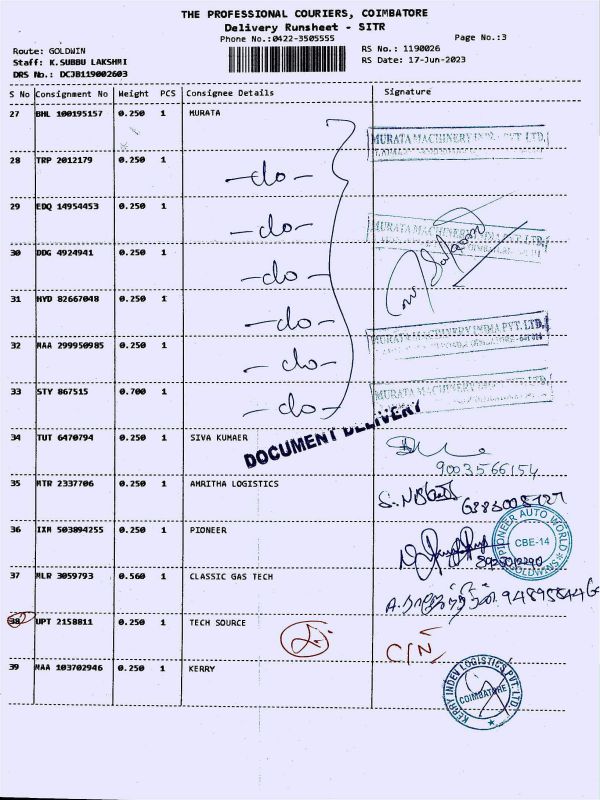 THE PROFESSIONAL COURIERS, COIMBATORE
Delivery Runsheet - SITR
Phone No.:0422-3505555 Page No.:3
Route: GOLDWIN RS No.: 1190026
Staff: K.SUBBU LAKSHMI RS Date: 17-Jun-2023
DRS No.: DCJB119002603
S No Consignment No Weight PCS Consignee Details Signature
27 BHL 100195157 0.250 1 MURATA
MURATA MACHINERY INDIA PVT. LTD.
28 TRP 2012179 0.250 1 -do-
29 EDQ 14954453 0.250 1 -do-
MURATA MACHINERY INDIA PVT. LTD.
30 DDG 4924941 0.250 1 -do-
31 HYD 82667048 0.250 1 -do-
MURATA MACHINERY INDIA PVT. LTD.
32 MAA 299950985 0.250 1 -do-
33 STY 867515 0.700 1 -do-
MURATA MACHINERY
DOCUMENT DELIVERY
34 TUT 6470794 0.250 1 SIVA KUMAER
9003566154
35 MTR 2337706 0.250 1 AMRITHA LOGISTICS
36 IXM 503894255 0.250 1 PIONEER
PIONEER AUTO WORLD
CBE-14
37 MLR 3059793 0.560 1 CLASSIC GAS TECH
38 UPT 2158811 0.250 1 TECH SOURCE
C/N
39 MAA 103702946 0.250 1 KERRY
KERRY INDEV LOGISTICS PVT. LTD.
COIMBATORE